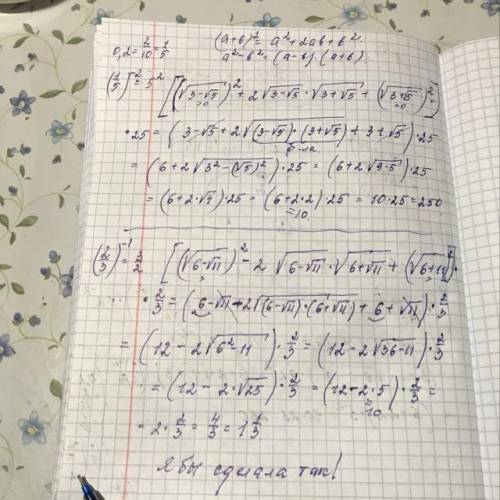 0,2=2/10=1/5 (a+b)²=a²+2ab+b²
a²-b²=(a-b)·(a+b)
(1/5)⁻²=5² [(√3-√5)²+2√3-√5·√3+√5+(√3+√5)²]·
·25=(3-√5+2√(3-√5)·(3+√5)+3+√5)·25
ф-ла
=(6+2√3²-(√5)²)·25=(6+2√9-5)·25
=(6+2·√4)·25=(6+2·2)·25=10·25=250
=10
(2/3)⁻¹=3/2 [(√6-√11)²-2√6-√11·√6+√11+(√6+11)²]·
·2/3=(6-√11-2√(6-√11)·(6+√11)+6+√11)·2/3
=(12-2√6²-11)·2/3=(12-2√36-11)·2/3
=(12-2·√25)·2/3=(12-2·5)·2/3=
=10
=2·2/3=4/3=1 1/3
Я бы сделала так!